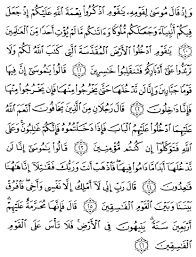 وَإِذْ قَالَ مُوسَىٰ لِقَوْمِهِ يَٰقَوْمِ ٱذْكُرُوا۟ نِعْمَةَ ٱللَّهِ عَلَيْكُمْ إِذْ جَعَلَ
فِيكُمْ أَنۢبِيَآءَ وَجَعَلَكُم مُّلُوكًا وَءَاتَىٰكُم مَّا لَمْ يُؤْتِ أَحَدًا مِّنَ ٱلْعَٰلَمِينَ
﴿٢٠﴾ يَٰقَوْمِ ٱدْخُلُوا۟ ٱلْأَرْضَ ٱلْمُقَدَّسَةَ ٱلَّتِى كَتَبَ ٱللَّهُ لَكُمْ وَلَا
تَرْتَدُّوا۟ عَلَىٰٓ أَدْبَارِكُمْ فَتَنقَلِبُوا۟ خَٰسِرِينَ ﴿٢١﴾ قَالُوا۟ يَٰمُوسَىٰٓ إِنَّ فِيهَا
قَوْمًا جَبَّارِينَ وَإِنَّا لَن نَّدْخُلَهَا حَتَّىٰ يَخْرُجُوا۟ مِنْهَا فَإِن يَخْرُجُوا۟ مِنْهَا
فَإِنَّا دَٰخِلُونَ ﴿٢٢﴾ قَالَ رَجُلَانِ مِنَ ٱلَّذِينَ يَخَافُونَ أَنْعَمَ ٱللَّهُ
عَلَيْهِمَا ٱدْخُلُوا۟ عَلَيْهِمُ ٱلْبَابَ فَإِذَا دَخَلْتُمُوهُ فَإِنَّكُمْ غَٰلِبُونَ وَعَلَى
ٱللَّهِ فَتَوَكَّلُوٓا۟ إِن كُنتُم مُّؤْمِنِينَ ﴿٢٣﴾ قَالُوا۟ يَٰمُوسَىٰٓ إِنَّا لَن
نَّدْخُلَهَآ أَبَدًا مَّا دَامُوا۟ فِيهَا فَٱذْهَبْ أَنتَ وَرَبُّكَ فَقَٰتِلَآ إِنَّا هَٰهُنَا
قَٰعِدُونَ ﴿٢٤﴾ قَالَ رَبِّ إِنِّى لَآ أَمْلِكُ إِلَّا نَفْسِى وَأَخِى فَٱفْرُقْ
بَيْنَنَا وَبَيْنَ ٱلْقَوْمِ ٱلْفَٰسِقِينَ ﴿٢٥﴾ قَالَ فَإِنَّهَا مُحَرَّمَةٌ عَلَيْهِمْ
أَرْبَعِينَ سَنَةً يَتِيهُونَ فِى ٱلْأَرْضِ فَلَا تَأْسَ عَلَى ٱلْقَوْمِ
ٱلْفَٰسِقِينَ ﴿٢٦﴾